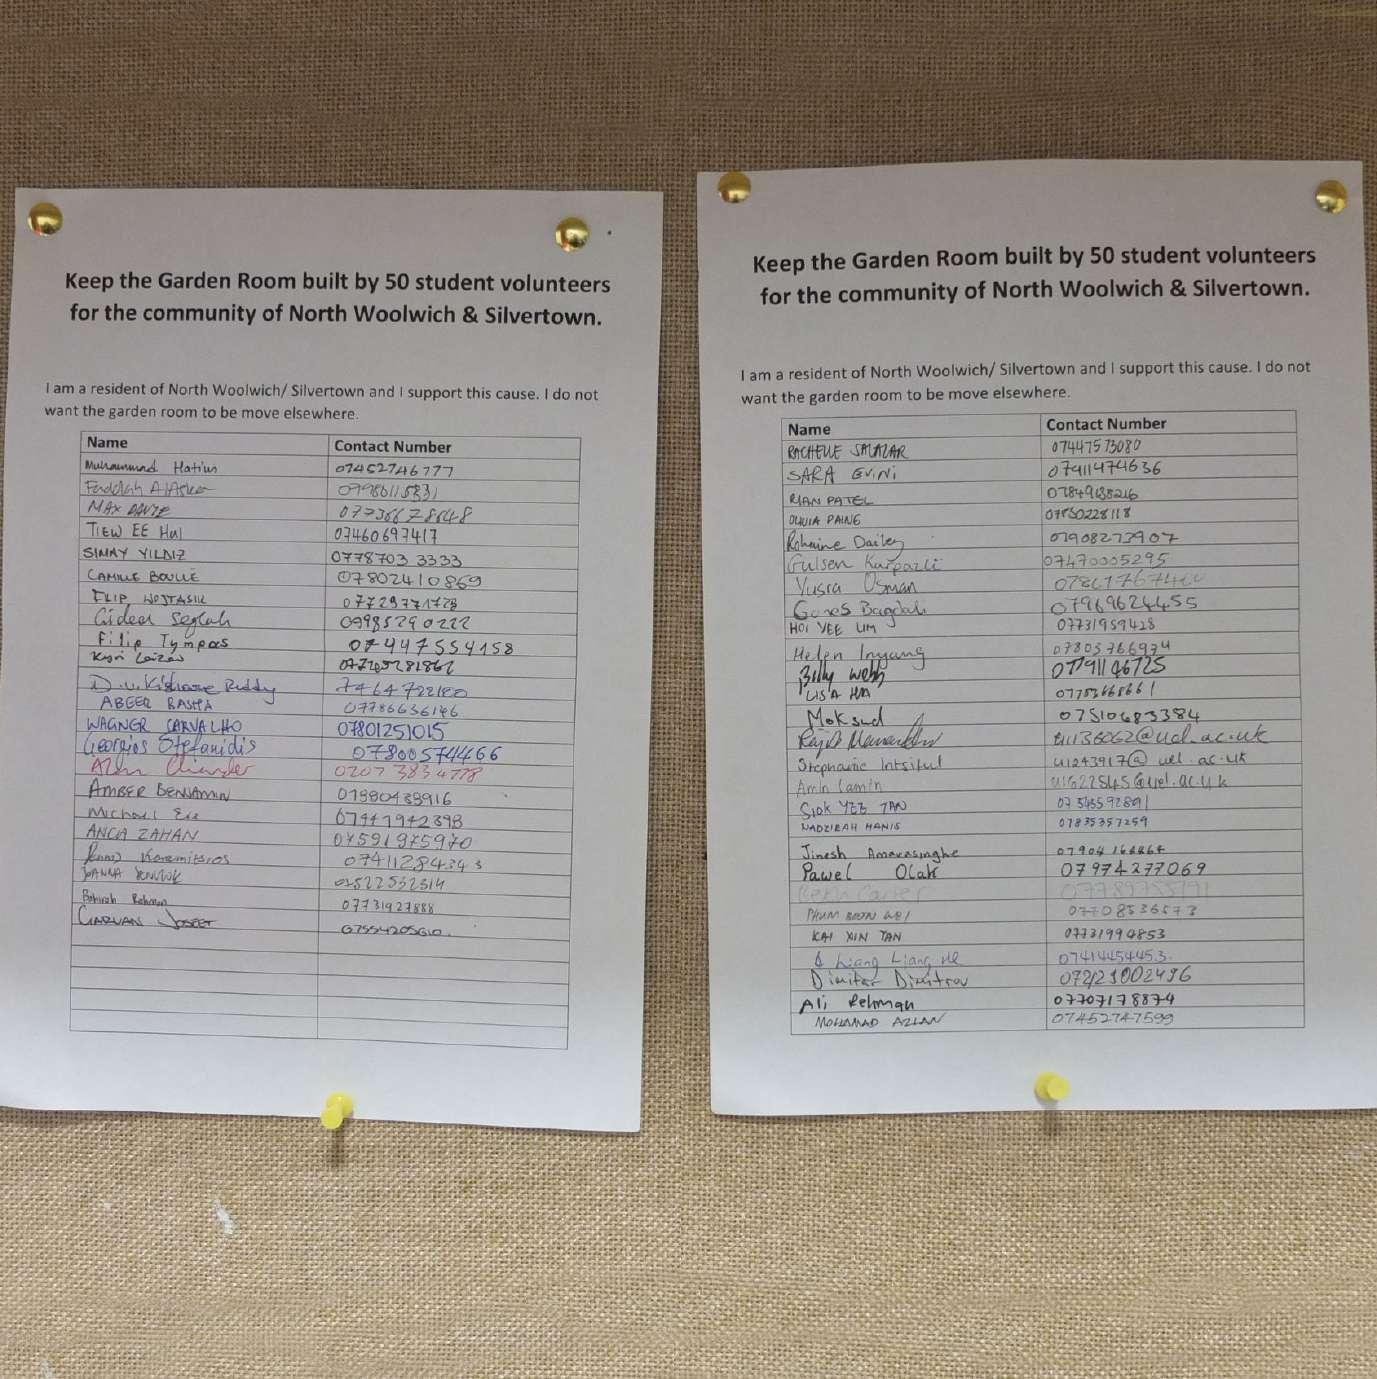 Keep the Garden Room built by 50 student volunteers
for the community of North Woolwich & Silvertown.
I am a resident of North Woolwich/ Silvertown and I support this cause. I do not
want the garden room to be move elsewhere.
Name Contact Number
Muhammad Hatim 07452746777
MAX
TIEW EE HUI 07460697417
SIMAY YILDIZ 0778703 3333
CAMILLE BOULLÉ 07802410869
FILIP WOJTASIK
Gideon Seglah 09985290222
Filip Tympas 07447554158
D.V. Kishore Reddy 7464722180
ABEER BASHA 07786636146
WAGNER CARVALHO 07801251015
Georgios Stefanidis 07800574466
0207 3834778
AMBER BENJAMIN 07980438916
Michael 07447942398
ANCA ZAHAN 07591975970
Karemitsios 07411284343
JOANNA
Rahman 07731927888
Keep the Garden Room built by 50 student volunteers
for the community of North Woolwich & Silvertown.
I am a resident of North Woolwich/ Silvertown and I support this cause. I do not
want the garden room to be move elsewhere.
Name Contact Number
RACHELLE SALAZAR 07447573080
SARA 07911474636
RIAN PATEL 07849138216
OLIVIA PAINE 07850228118
Rohaine Dailey 07908273907
Gulsen Karpazli 07470005295
Yusra Osman
Bagdah 07969624455
HOI YEE LIM 07731959428
Helen Inyang 07803766974
Billy Webb 07791146725
LISA
Moksud 07510683384
u1136062@uel.ac.uk
Stephanie u1243917@uel.ac.uk
Amin Lamin u1622545@uel.ac.uk
SIOK YEE TAN 07545592891
NADZIRAH HANIS 07835357259
Jinesh Amarasinghe 07904166864
Pawel Olak 07974277069
Kevin Carter
07708536573
KAI XIN TAN 07731994853
Liang Liang He 07414454453
Dimitar Dimitrov
Ali Rehman 07707178874
MOHAMAD AZLAN 07452747599